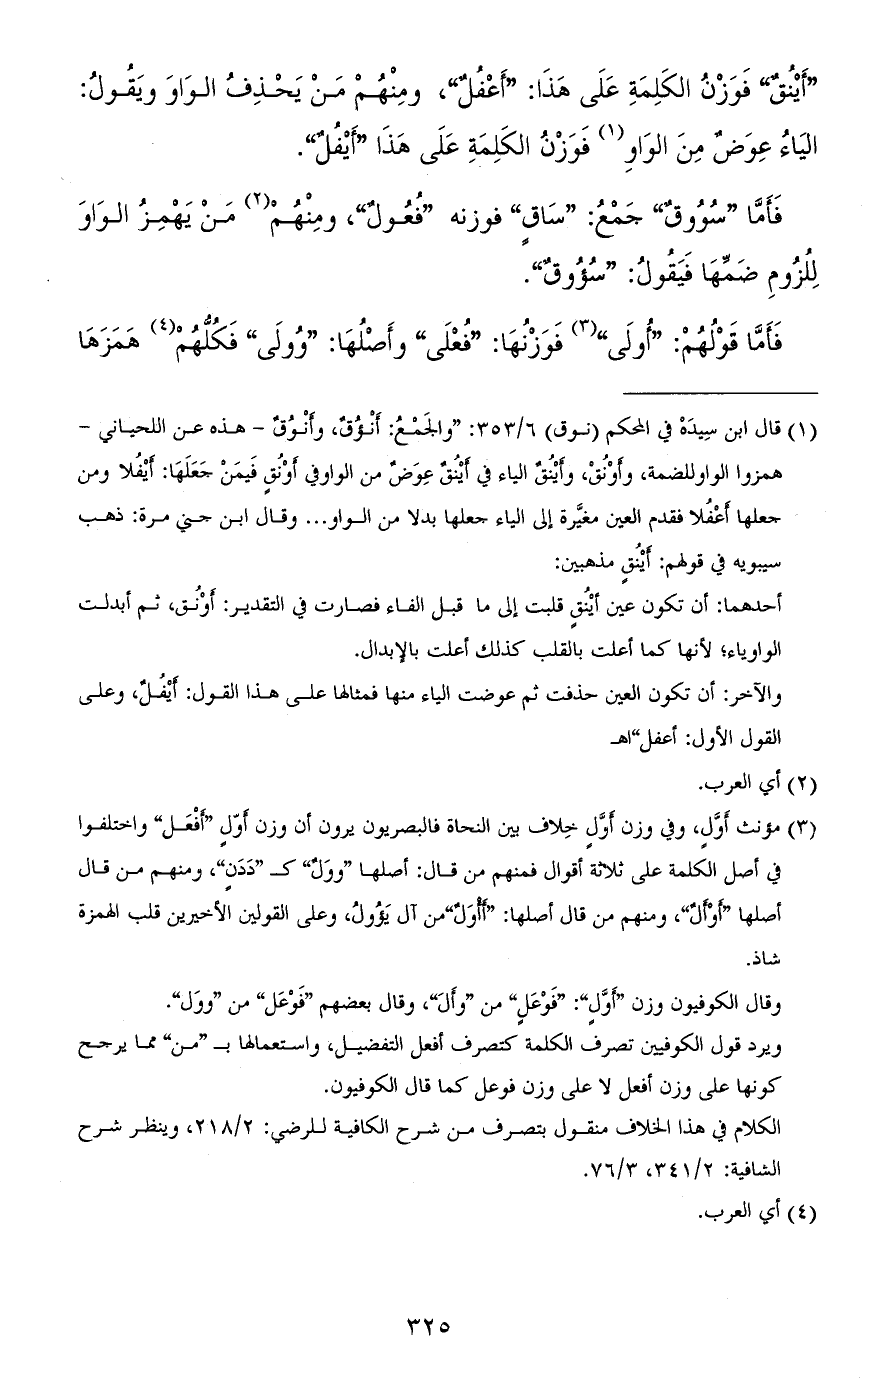 ”أَيْنُقٌ“ فَوَزْنُ الكَلِمَةِ عَلَى هَذَا: ”أَعْفُلٌ“، ومِنْهُمْ مَنْ يَحْذِفُ الوَاوَ ويَقُولُ:
اليَاءُ عِوَضٌ مِنَ الوَاوِ(١) فَوَزْنُ الكَلِمَةِ عَلَى هَذَا ”أَيْفُلٌ“.
فَأَمَّا ”سُوُوقٌ“ جَمْعُ: ”سَاقٍ“ فوزنه ”فُعُولٌ“، ومِنْهُمْ(٢) مَنْ يَهْمِزُ الوَاوَ
لِلُزُومِ ضَمِّهَا فَيَقُولُ: ”سُؤُوقٌ“.
فَأَمَّا قَوْلُهُمْ: ”أُولَى“(٣) فَوَزْنُهَا: ”فُعْلَى“ وأَصْلُهَا: ”وُولَى“ فَكُلُّهُمْ(٤) هَمَزَهَا
(١) قال ابن سِيدَهْ في المحكم (نوق) ٣٥٣/٦: ”والجَمْعُ: أَنْؤُقٌ، وأَنْوُقٌ – هذه عن اللحياني –
همزوا الواوللضمة، وأَوْنُقٌ، وأَيْنُقٌ الياء في أَيْنُقٌ عِوَضٌ من الواوفي أَوْنُقٍ فَيمَنْ جَعَلَهَا: أَيْفُلا ومن
جعلها أَعْفُلا فقدم العين مغيَّرة إلى الياء جعلها بدلا من الواو... وقال ابن جني مرة: ذهب
سيبويه في قولهم: أَيْنُقٍ مذهبين:
أحدهما: أن تكون عين أَيْنُقٍ قلبت إلى ما قبل الفاء فصارت في التقدير: أَوْنُق، ثم أبدلت
الواوياء؛ لأنها كما أعلت بالقلب كذلك أعلت بالإبدال.
والآخر: أن تكون العين حذفت ثم عوضت الياء منها فمثالها على هذا القول: أَيْفُلٌ، وعلى
القول الأول: أعفل“اهـ
(٢) أي العرب.
(٣) مؤنث أَوَّلٍ، وفي وزن أَوَّلٍ خِلاف بين النحاة فالبصريون يرون أن وزن أَوّلٍ ”أَفْعَل“ واختلفوا
في أصل الكلمة على ثلاثة أقوال فمنهم من قال: أصلها ”وولٌ“ كـ ”دَدَنٍ“، ومنهم من قال
أصلها ”أَوْأَلٌ“، ومنهم من قال أصلها: ”أَأْوَلٌ“من آل يَؤُولُ، وعلى القولين الأخيرين قلب الهمزة
شاذ.
وقال الكوفيون وزن ”أَوَّلٍ“: ”فَوْعَلٍ“ من ”وأَلَ“، وقال بعضهم ”فَوْعَل“ من ”وول“.
ويرد قول الكوفيين تصرف الكلمة كتصرف أفعل التفضيل، واستعمالها بـ ”من“ مما يرجح
كونها على وزن أفعل لا على وزن فوعل كما قال الكوفيون.
الكلام في هذا الخلاف منقول بتصرف من شرح الكافية للرضي: ٢١٨/٢، وينظر شرح
الشافية: ٣٤١/٢، ٧٦/٣.
(٤) أي العرب.
٣٢٥